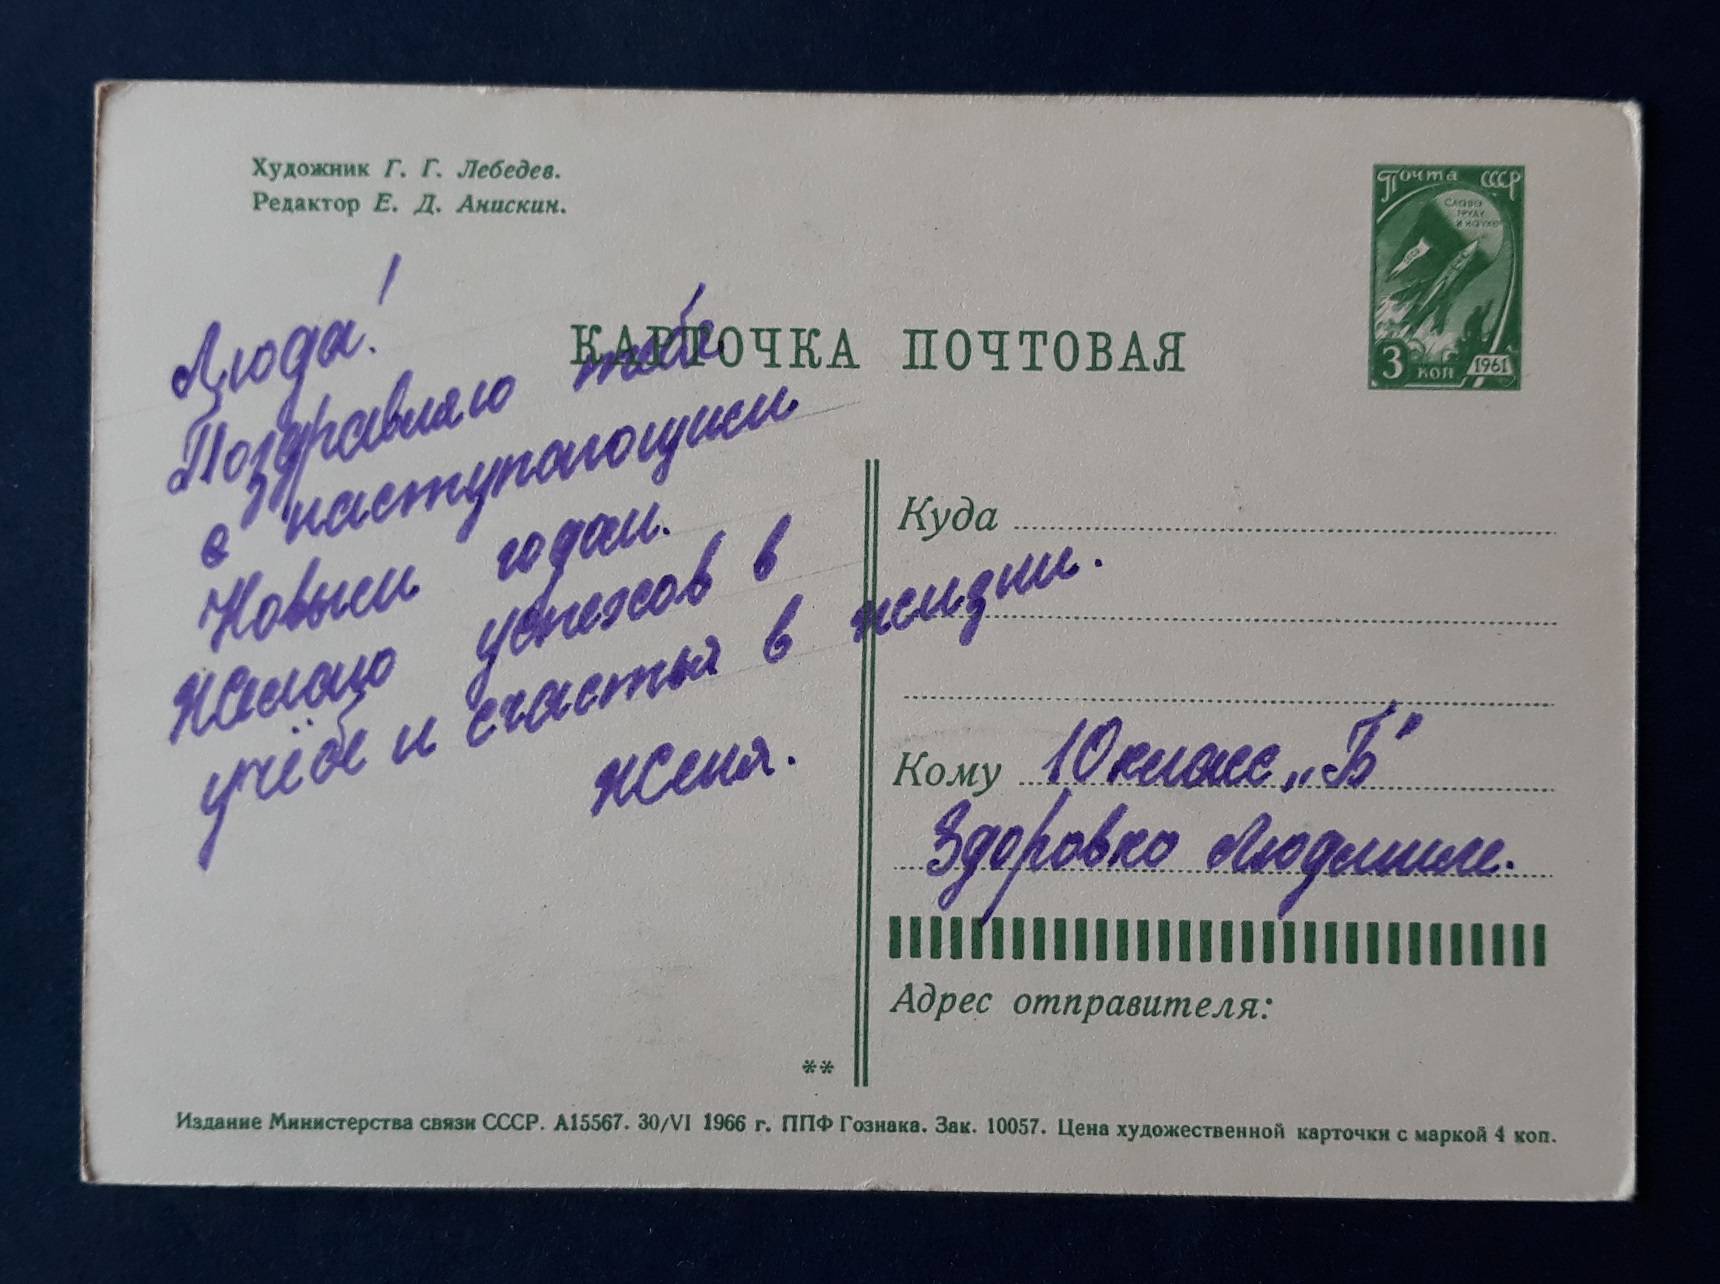 Художник Г. Г. Лебедев.
Редактор Е. Д. Анискин.
Почта СССР
СЛАВА
ТРУДУ
И НАУКЕ
СССР
3 коп
1961
КАРТОЧКА ПОЧТОВАЯ
Люда!
Поздравляю тебя
с наступающим
Новым годом.
Желаю успехов в
учёбе и счастья в жизни.
Женя.
Куда
Кому 10 класс „Б"
Здоровко Людмиле.
Адрес отправителя:
**
Издание Министерства связи СССР. А15567. 30/VI 1966 г. ППФ Гознака. Зак. 10057. Цена художественной карточки с маркой 4 коп.